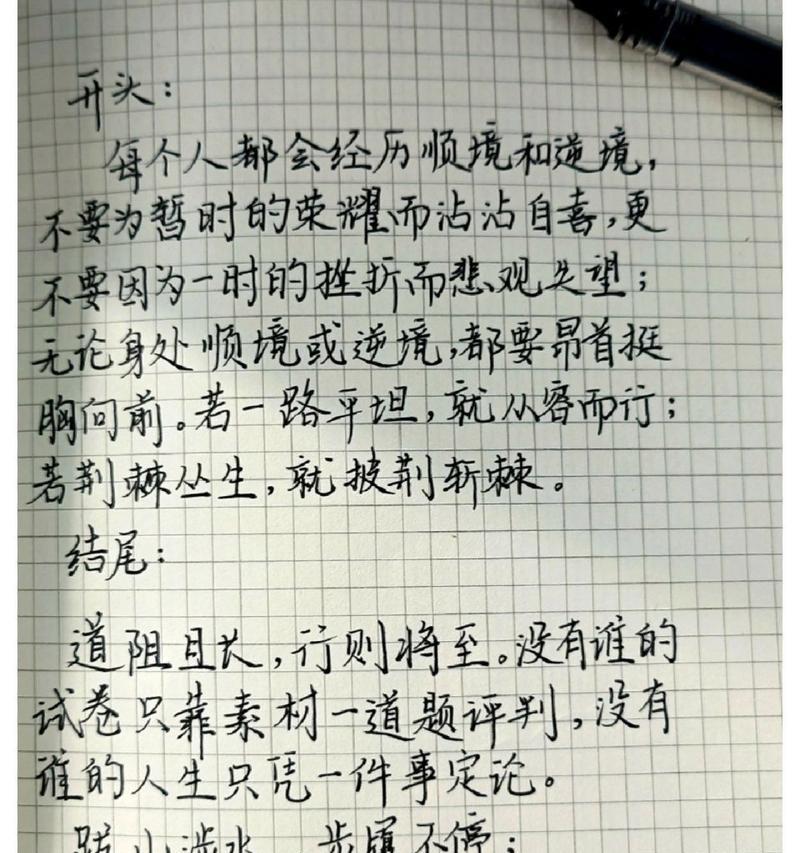 开头：
每个人都会经历顺境和逆境，
不要为暂时的荣耀而沾沾自喜，更
不要因为一时的挫折而悲观失望；
无论身处顺境或逆境，都要昂首挺
胸向前。若一路平坦，就从容而行；
若荆棘丛生，就披荆斩棘。
结尾：
道阻且长，行则将至。没有谁的
试卷只靠素材一道题评判，没有
谁的人生只凭一件事定论。
跋山涉水，步履不停；